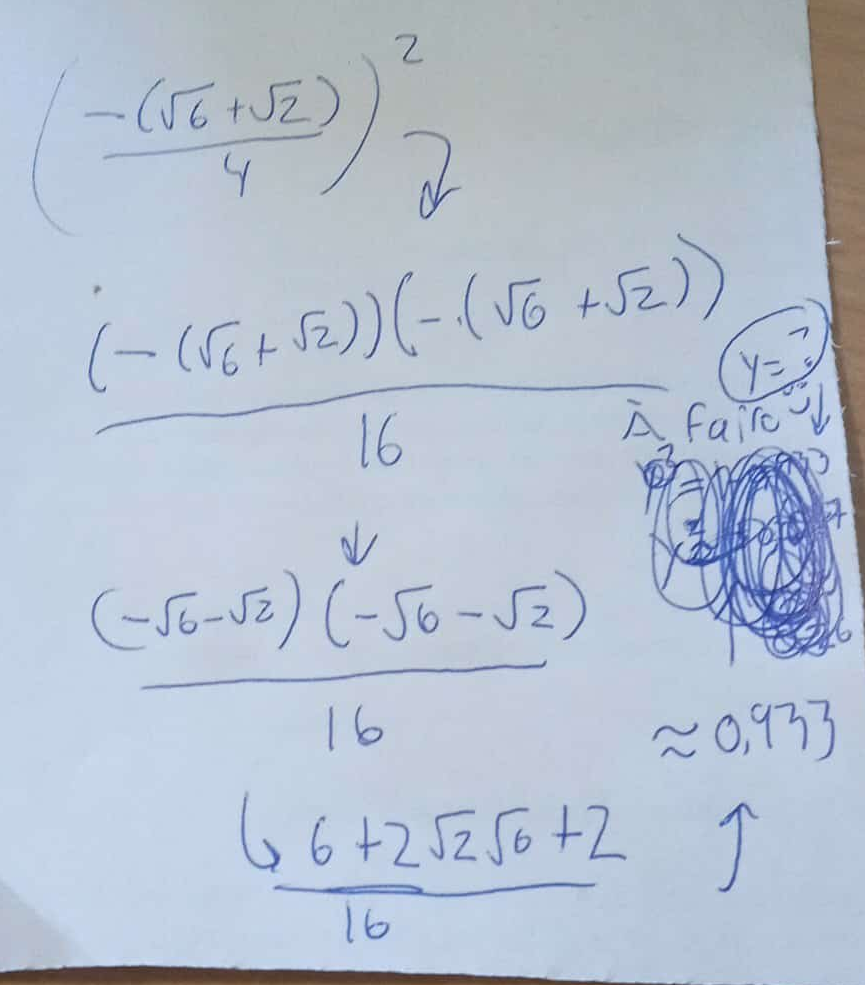 (-(√6+√2)/4)²
(-(√6+√2))(-(√6+√2))
16
y=?
À faire
(-√6-√2)(-√6-√2)
16
≈0,933
6+2√2√6+2
16